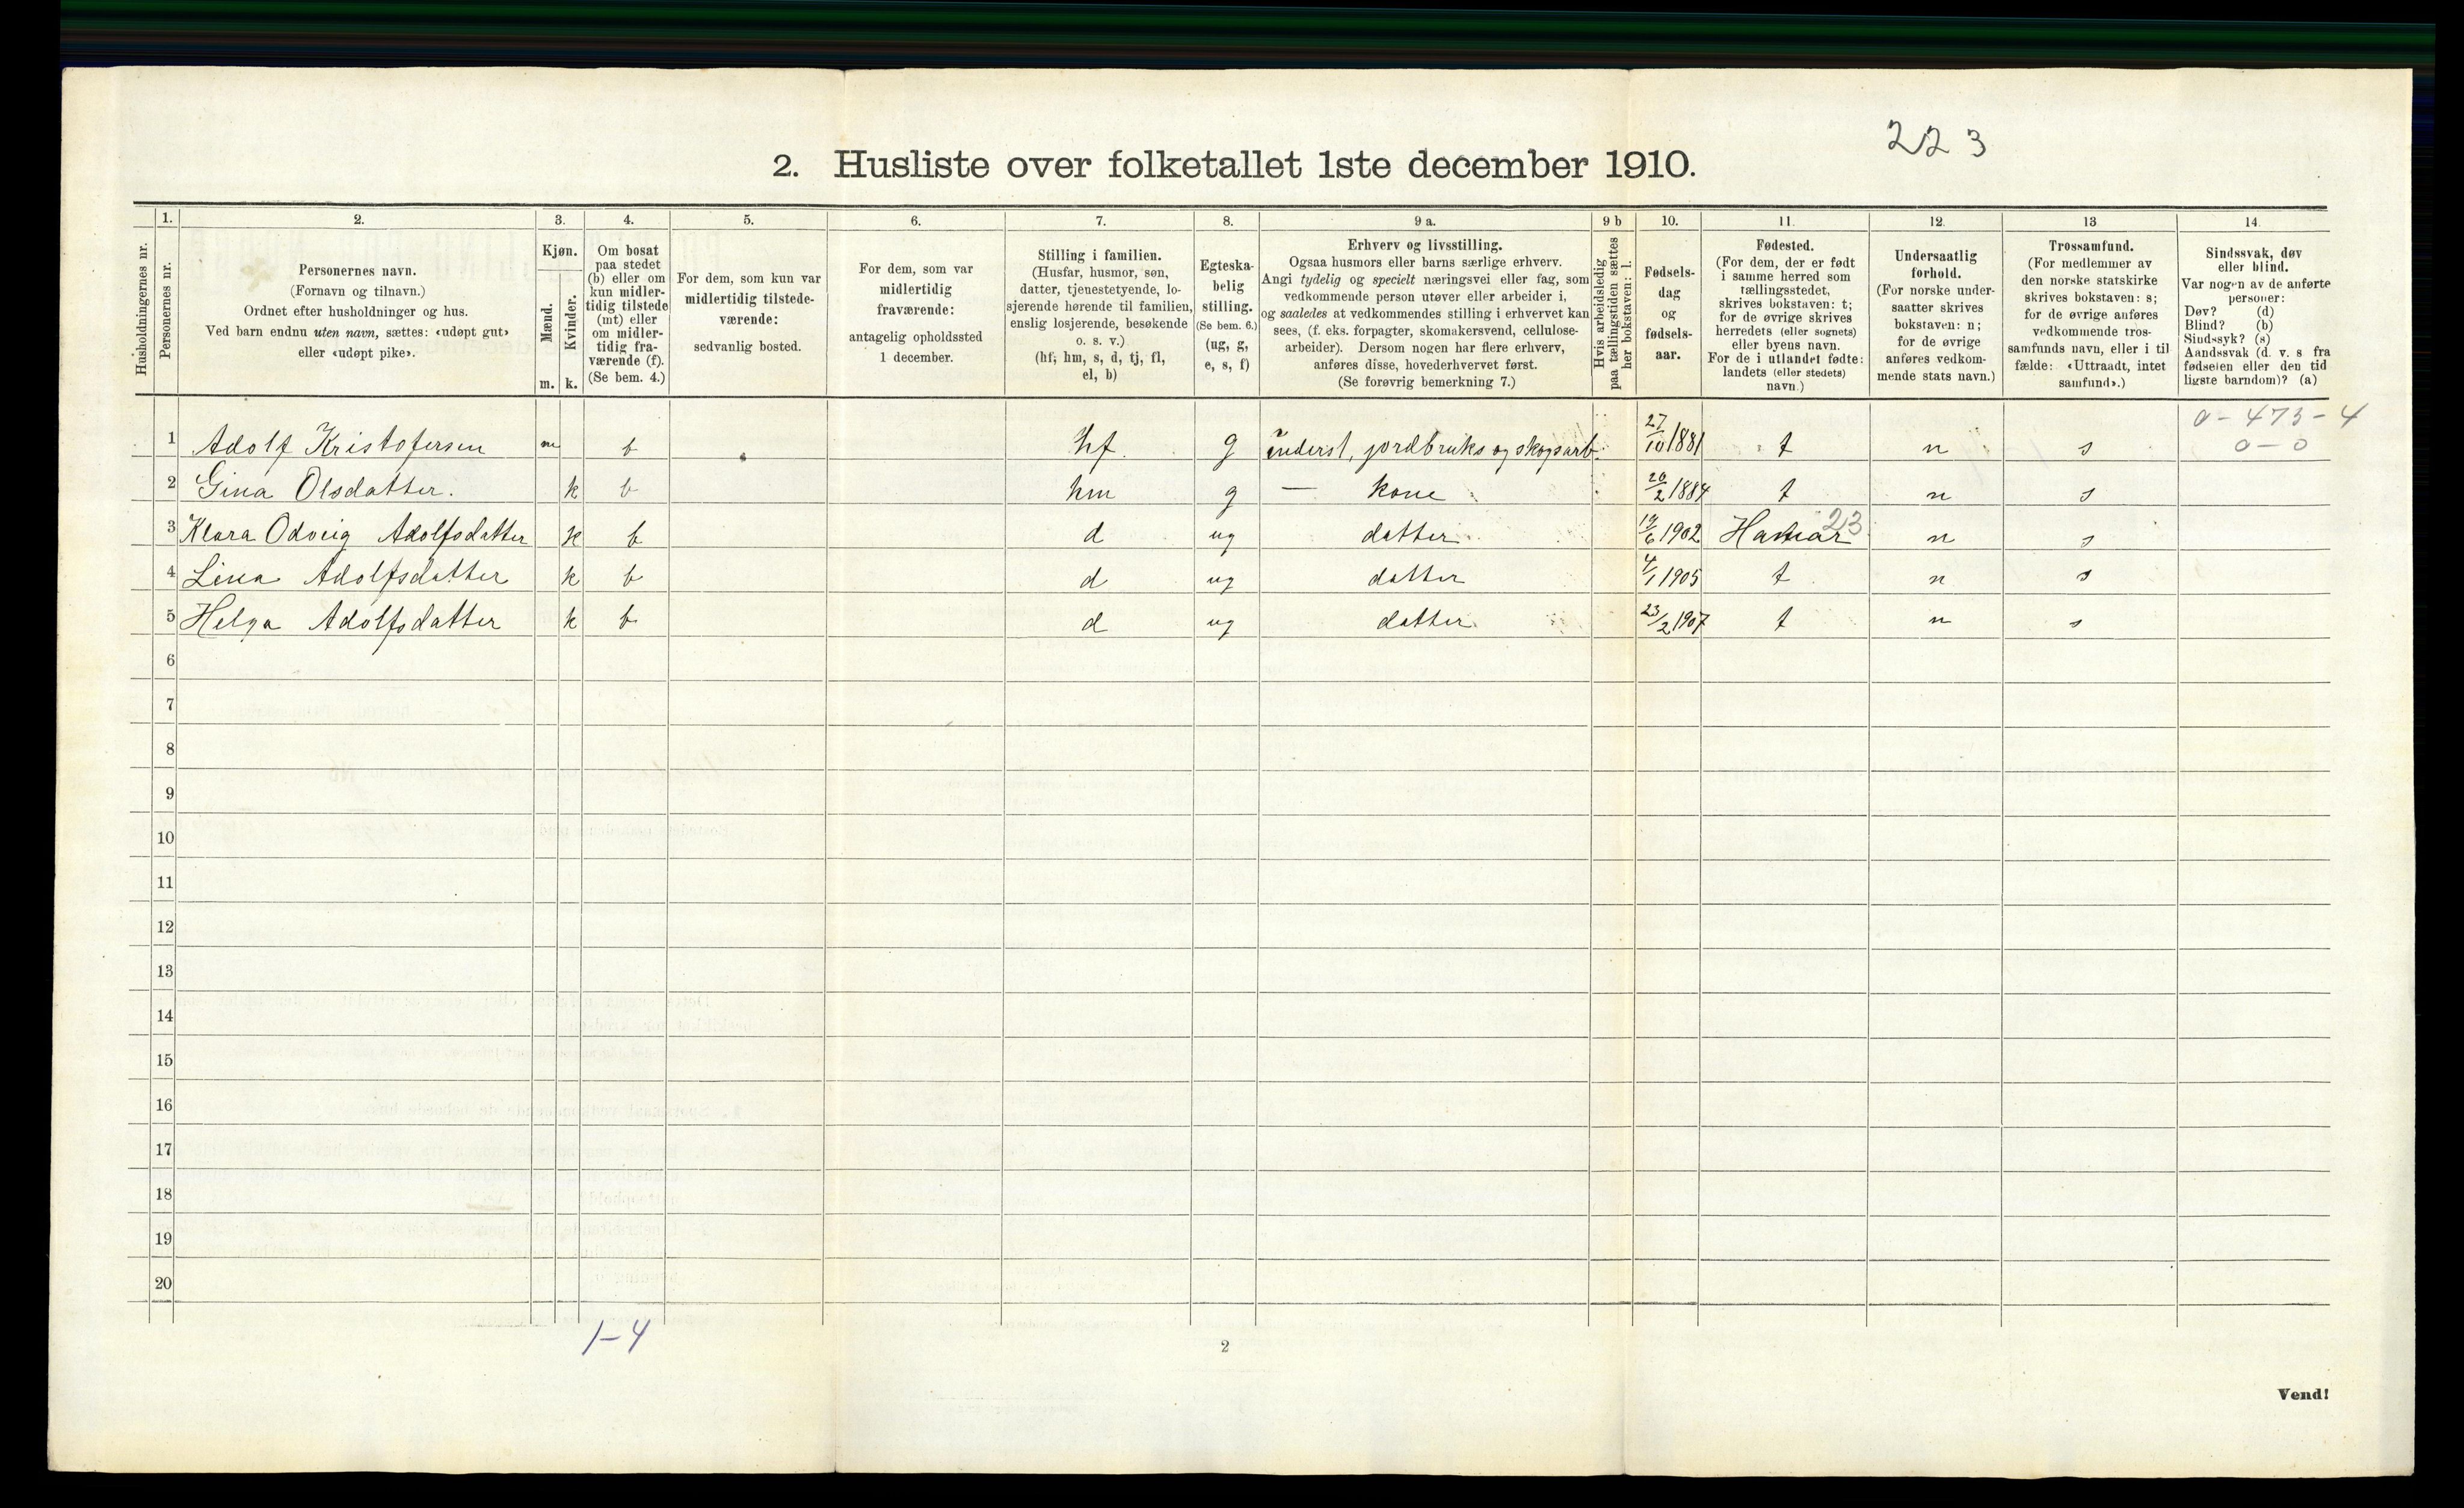 223
2. Husliste over folketallet 1ste december 1910.
Husholdningernes nr.
1.
Personernes nr.
2.
Personernes navn.
(Fornavn og tilnavn.)
Ordnet efter husholdninger og hus.
Ved barn endnu uten navn, sættes: «udøpt gut»
eller «udøpt pike».
3.
Kjøn.
Mænd.
Kvinder.
m. k.
4.
Om bosat
paa stedet
(b) eller om
kun midler-
tidig tilstede
(mt) eller
om midler-
tidig fra-
værende (f).
(Se bem. 4.)
5.
For dem, som kun var
midlertidig tilstede-
værende:
sedvanlig bosted.
6.
For dem, som var
midlertidig
fraværende:
antagelig opholdssted
1 december.
7.
Stilling i familien.
(Husfar, husmor, søn,
datter, tjenestetyende, lo-
sjerende hørende til familien,
enslig losjerende, besøkende
o. s. v.)
(hf, hm, s, d, tj, fl,
el, b)
8.
Egteska-
belig
stilling.
(Se bem. 6.)
(ug, g,
e, s, f)
9 a.
Erhverv og livsstilling.
Ogsaa husmors eller barns særlige erhverv.
Angi tydelig og specielt næringsvei eller fag, som
vedkommende person utøver eller arbeider i,
og saaledes at vedkommendes stilling i erhvervet kan
sees, (f. eks. forpagter, skomakersvend, cellulose-
arbeider). Dersom nogen har flere erhverv,
anføres disse, hovederhvervet først.
(Se forøvrig bemerkning 7.)
9 b
Hvis arbeidsledig
paa tællingstiden sættes
her bokstaven: l.
10.
Fødsels-
dag
og
fødsels-
aar.
11.
Fødested.
(For dem, der er født
i samme herred som
tællingsstedet,
skrives bokstaven: t;
for de øvrige skrives
herredets (eller sognets)
eller byens navn.
For de i utlandet fødte:
landets (eller stedets)
navn.)
12.
Undersaatlig
forhold.
(For norske under-
saatter skrives
bokstaven: n;
for de øvrige
anføres vedkom-
mende stats navn.)
13
Trossamfund.
(For medlemmer av
den norske statskirke
skrives bokstaven: s;
for de øvrige anføres
vedkommende tros-
samfunds navn, eller i til
fælde: «Uttraadt, intet
samfund».)
14.
Sindssvak, døv
eller blind.
Var nogen av de anførte
personer:
Døv? (d)
Blind? (b)
Sindssyk? (s)
Aandssvak (d. v. s fra
fødselen eller den tid
ligste barndom)? (a)
0-473-4
0-0
1 Adolf Kristofersen m b hf. g inderst, jordbruks og skogsarb. 27/10 1881 t n s
2 Gina Olsdatter. k b hm g — kone 20/2 1884 t n s
3 Klara Odveig Adolfsdatter k b d ug datter 19/6 1902 Hamar 23 n s
4 Lina Adolfsdatter k b d ug datter 4/1 1905 t n s
5 Helga Adolfsdatter k b d ug datter 23/2 1907 t n s
6
7
8
9
10
11
12
13
14
15
16
17
18
19
20
1-4
2
Vend!